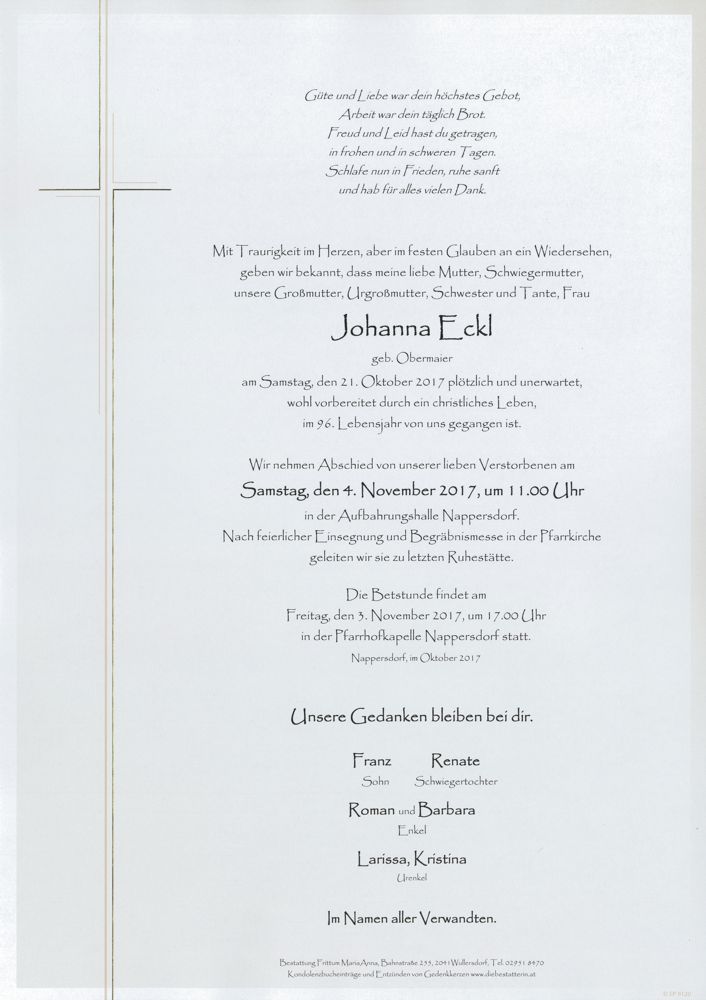 Güte und Liebe war dein höchstes Gebot,
Arbeit war dein täglich Brot.
Freud und Leid hast du getragen,
in frohen und in schweren Tagen.
Schlafe nun in Frieden, ruhe sanft
und hab für alles vielen Dank.
Mit Traurigkeit im Herzen, aber im festen Glauben an ein Wiedersehen,
geben wir bekannt, dass meine liebe Mutter, Schwiegermutter,
unsere Großmutter, Urgroßmutter, Schwester und Tante, Frau
Johanna Eckl
geb. Obermaier
am Samstag, den 21. Oktober 2017 plötzlich und unerwartet,
wohl vorbereitet durch ein christliches Leben,
im 96. Lebensjahr von uns gegangen ist.
Wir nehmen Abschied von unserer lieben Verstorbenen am
Samstag, den 4. November 2017, um 11.00 Uhr
in der Aufbahrungshalle Nappersdorf.
Nach feierlicher Einsegnung und Begräbnismesse in der Pfarrkirche
geleiten wir sie zu letzten Ruhestätte.
Die Betstunde findet am
Freitag, den 3. November 2017, um 17.00 Uhr
in der Pfarrhofkapelle Nappersdorf statt.
Nappersdorf, im Oktober 2017
Unsere Gedanken bleiben bei dir.
Franz Renate
Sohn Schwiegertochter
Roman und Barbara
Enkel
Larissa, Kristina
Urenkel
Im Namen aller Verwandten.
Bestattung Frittum MariaAnna, Bahnstraße 255, 2041 Wullersdorf, Tel. 02951 8470
Kondolenzbucheinträge und Entzünden von Gedenkkerzen www.diebestatterin.at